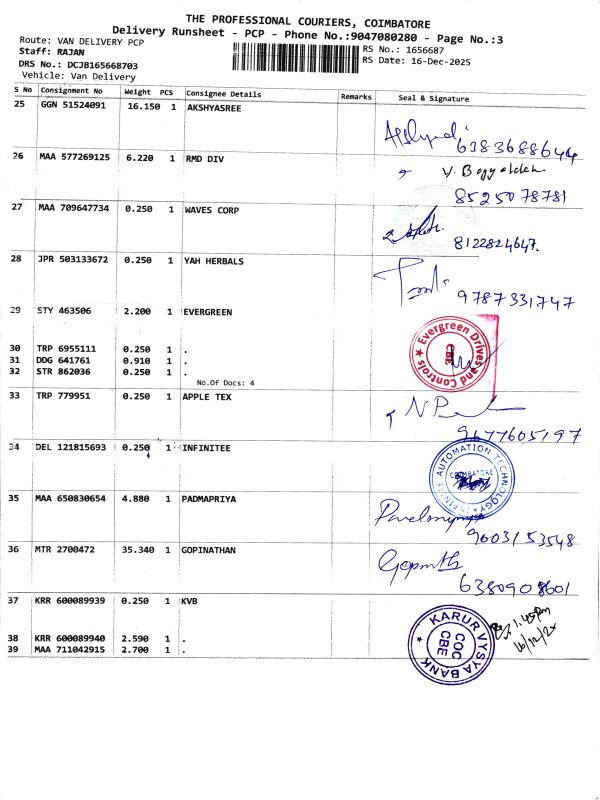 THE PROFESSIONAL COURIERS, COIMBATORE
Delivery Runsheet - PCP - Phone No.:9047080280 - Page No.:3
Route: VAN DELIVERY PCP
RS No.: 1656687
Staff: RAJAN
RS Date: 16-Dec-2025
DRS No.: DCJB165668703
Vehicle: Van Delivery
S No Consignment No Weight PCS Consignee Details Remarks Seal & Signature
25 GGN 51524091 16.150 1 AKSHYASREE
6383688644
26 MAA 577269125 6.220 1 RMD DIV
8525078781
27 MAA 709647734 0.250 1 WAVES CORP
8122824647.
28 JPR 503133672 0.250 1 YAH HERBALS
9787331747
29 STY 463506 2.200 1 EVERGREEN
Evergreen Drives and Controls ★ CBE
30 TRP 6955111 0.250 1 .
31 DDG 641761 0.910 1 .
32 STR 862036 0.250 1 .
No.Of Docs: 4
33 TRP 779951 0.250 1 APPLE TEX
9677605197
34 DEL 121815693 0.250 1 INFINITEE
INFINITE AUTOMATION TECHNOLOGY ★
COIMBATORE
35 MAA 650830654 4.880 1 PADMAPRIYA
9003153548
36 MTR 2700472 35.340 1 GOPINATHAN
Gopinath
6380908601
37 KRR 600089939 0.250 1 KVB
KARUR VYSYA BANK ★
COC
CBE
1.45pm
38 KRR 600089940 2.590 1 .
39 MAA 711042915 2.700 1 .